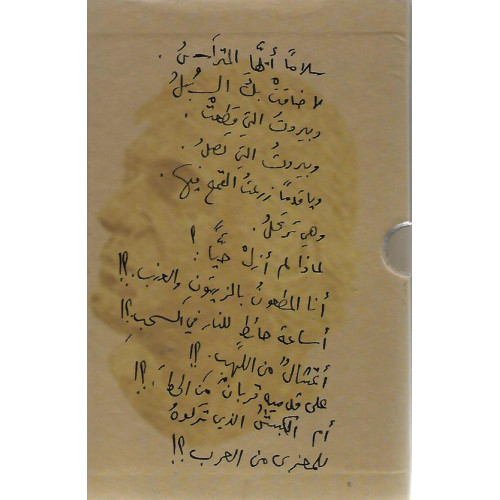 سلامًا أيُّها المتراسُ .
لا ضاقتْ بكَ السُّبُلُ
وبيروتَ التي قطعتْ .
وبيروتُ التي تصلُ .
ويا قدمًا زرعتُ القمحَ فيها .
وهي ترتحلُ .
لماذا لم أزلْ حيًّا ؟
أنا المطعونُ بالزيتون والعنب . ؟!
أساعة حائط للنار في السحب ؟!
أتمثالٌ من اللهب . ؟!
على قدميه قربانٌ من الحطب . ؟!
أم الكبشُ الذي تركوهُ
للمغزى من العرب ؟!